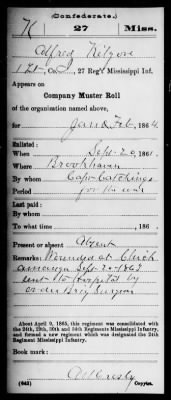 (Confederate.)
K 27 Miss.
Alfred Kilgore
1 Lt., Co. , 27 Reg't Mississippi Inf.
Appears on
Company Muster Roll
of the organization named above,
for Jan & Feb, 1864.
Enlisted:
When Sept 20, 1861.
Where Brookhaven
By whom Capt Catchings
Period for the war
Last paid:
By whom
To what time , 186 .
Present or absent Absent
Remarks: Wounded at Chick
amauga Sept 20 1863
sent to hospital by
order Brig Surgeon
About April 9, 1865, this regiment was consolidated with
the 24th, 29th, 30th and 34th Regiments Mississippi Infantry,
and formed a new regiment which was designated the 24th
Regiment Mississippi Infantry.
Book mark:
(642) Copyist.